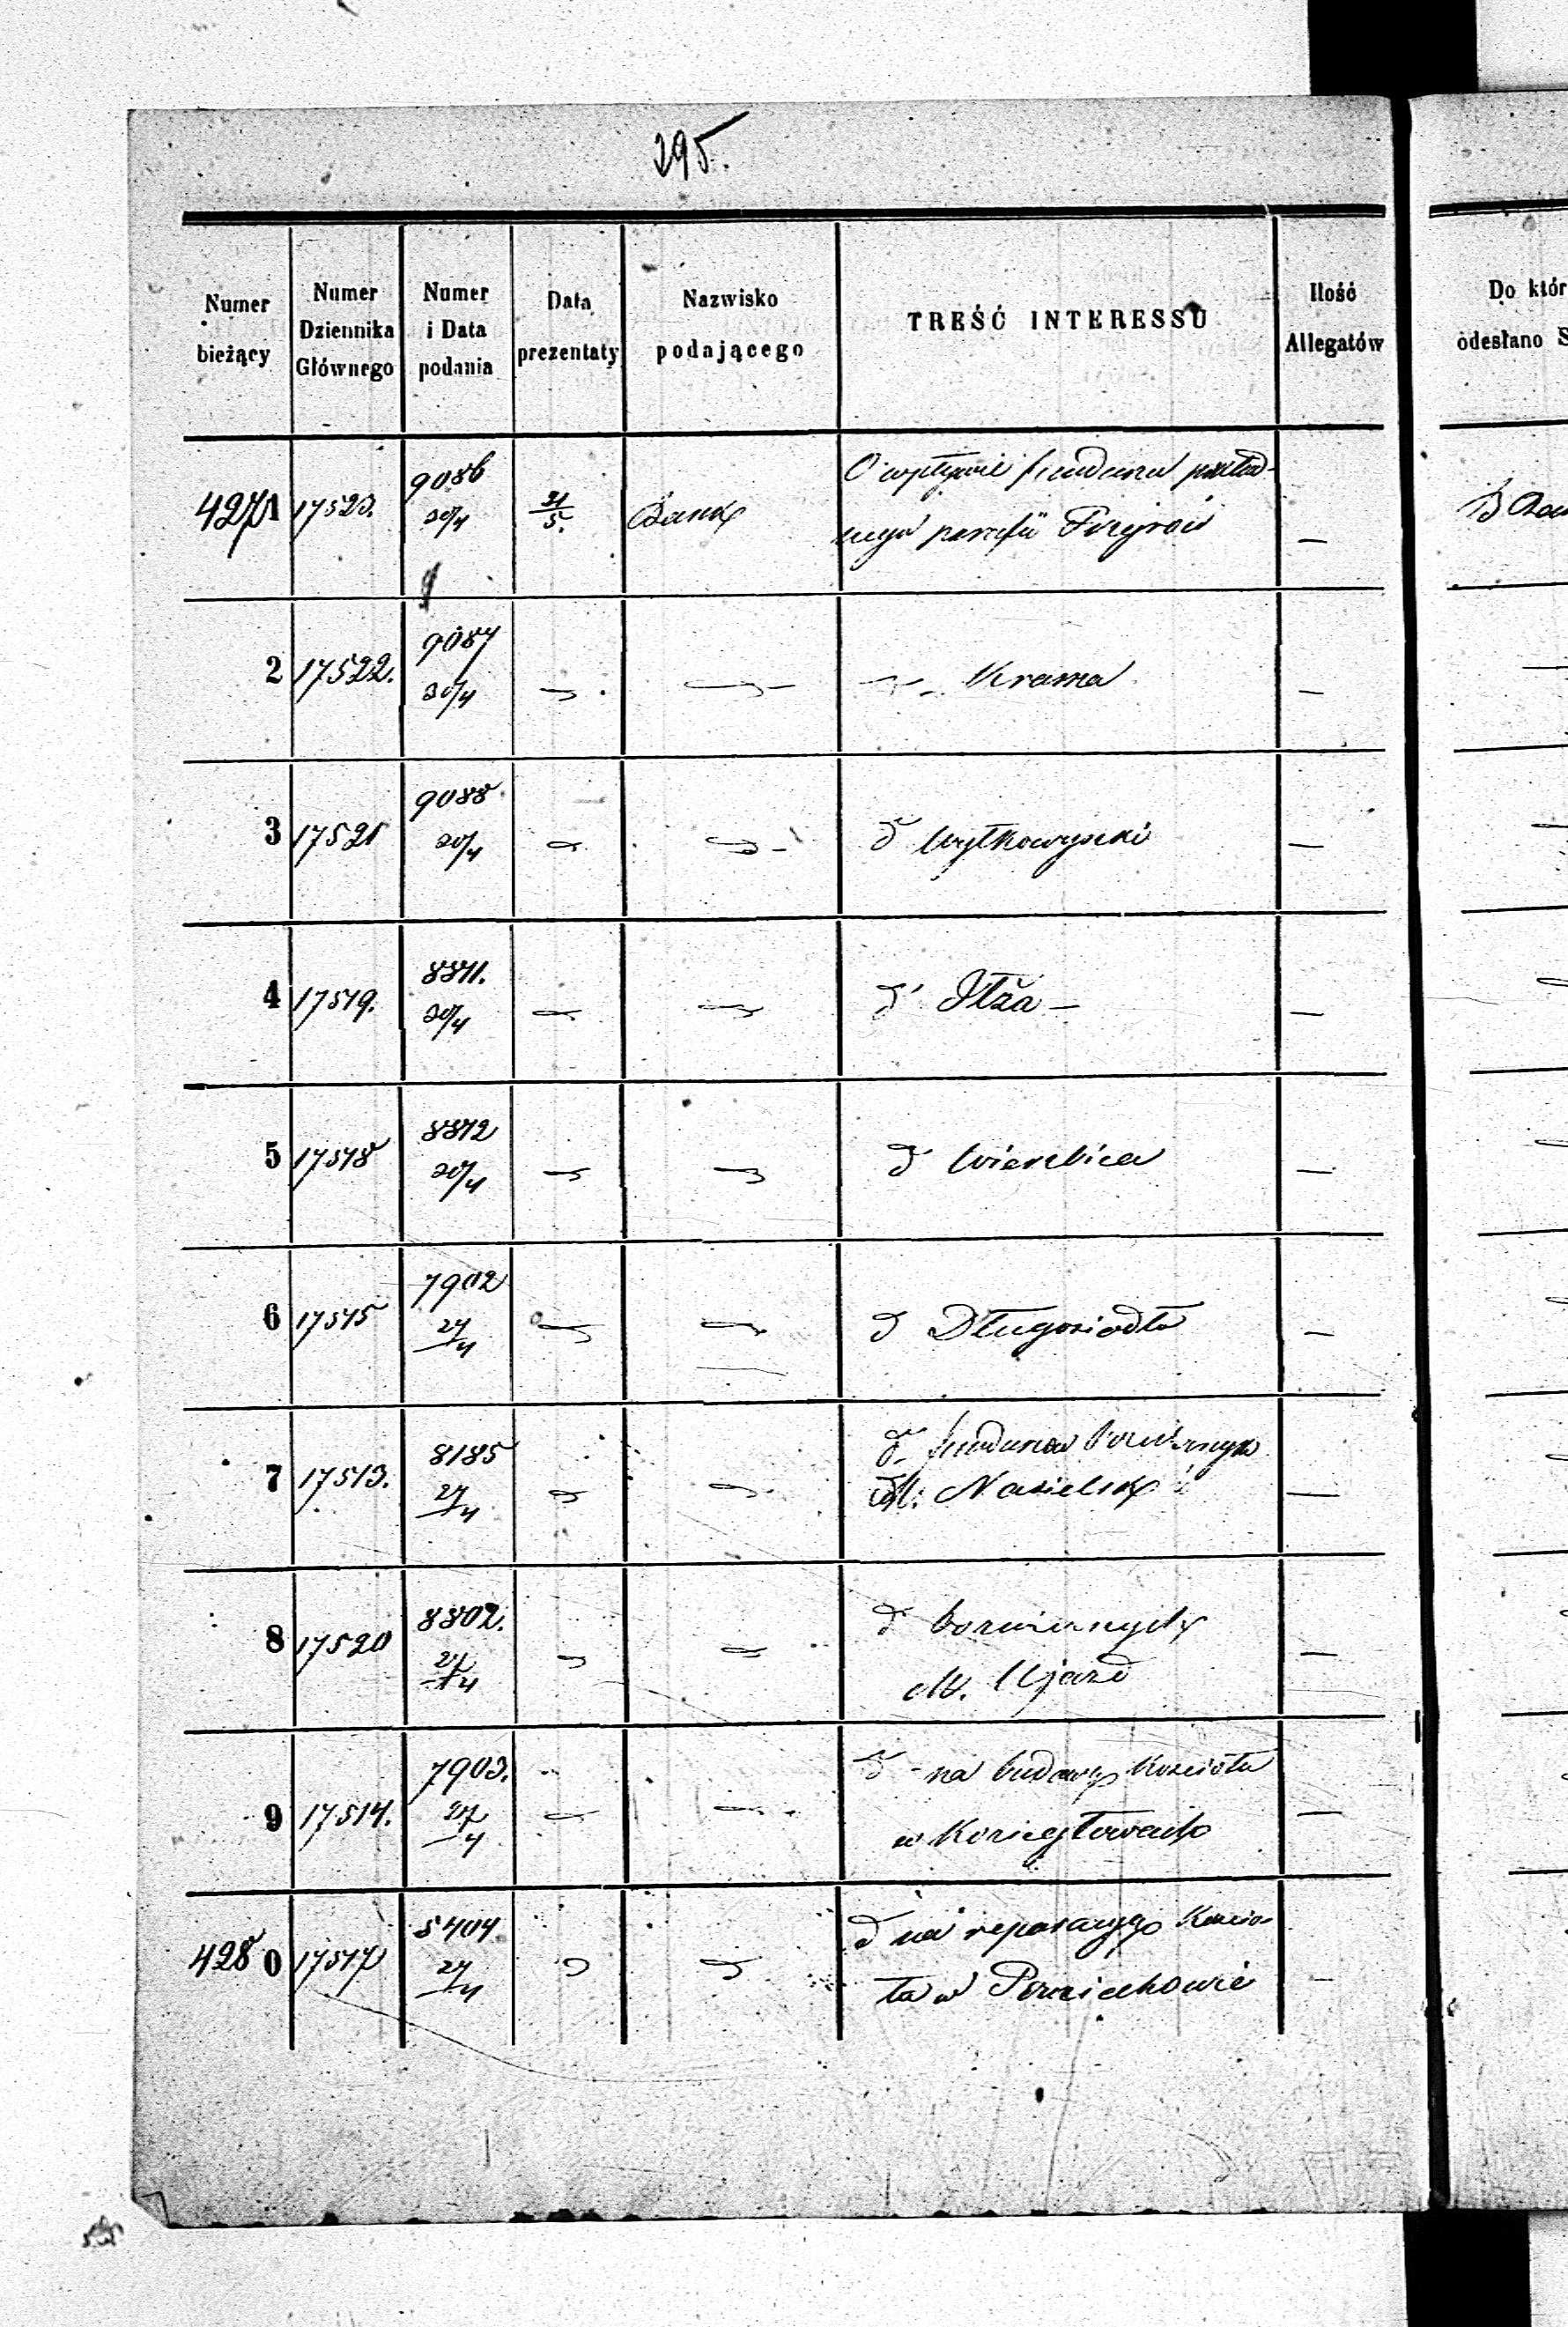 295.
Numer bieżący | Numer Dziennika Głównego | Numer i Data podania | Data prezentaty | Nazwisko podającego | TREŚĆ INTERESSU | Ilość Allegatów | Do któr
odesłano S
4271 | 17523. | 9086 30/4 | 21/5. | Bank | O wpływie funduszu pokład-
nego parafii | —
2 | 17522. | 9087 30/4 | Krama | —
3 | 17521 | 9088 30/4 | d° Wyłkowyszki | —
4 | 17519. | 8871. 30/4 | d° Iłża — | —
5 | 17518 | 8872 30/4 | d° Wierzbica | —
6 | 17515 | 7902 27/4 | d° Długosiodło | —
7 | 17513. | 8185 27/4 | d° funduszu
M. Nasielsk | —
8 | 17520 | 8802. 27/4 | d°
M. Ujazd | —
9 | 17514. | 7903. 27/4 | d° na budowę Kościoła
w Koziegłowach | —
4280 | 17517 | 5404 27/4 | d° na reparacyę Kościo-
ła w | —